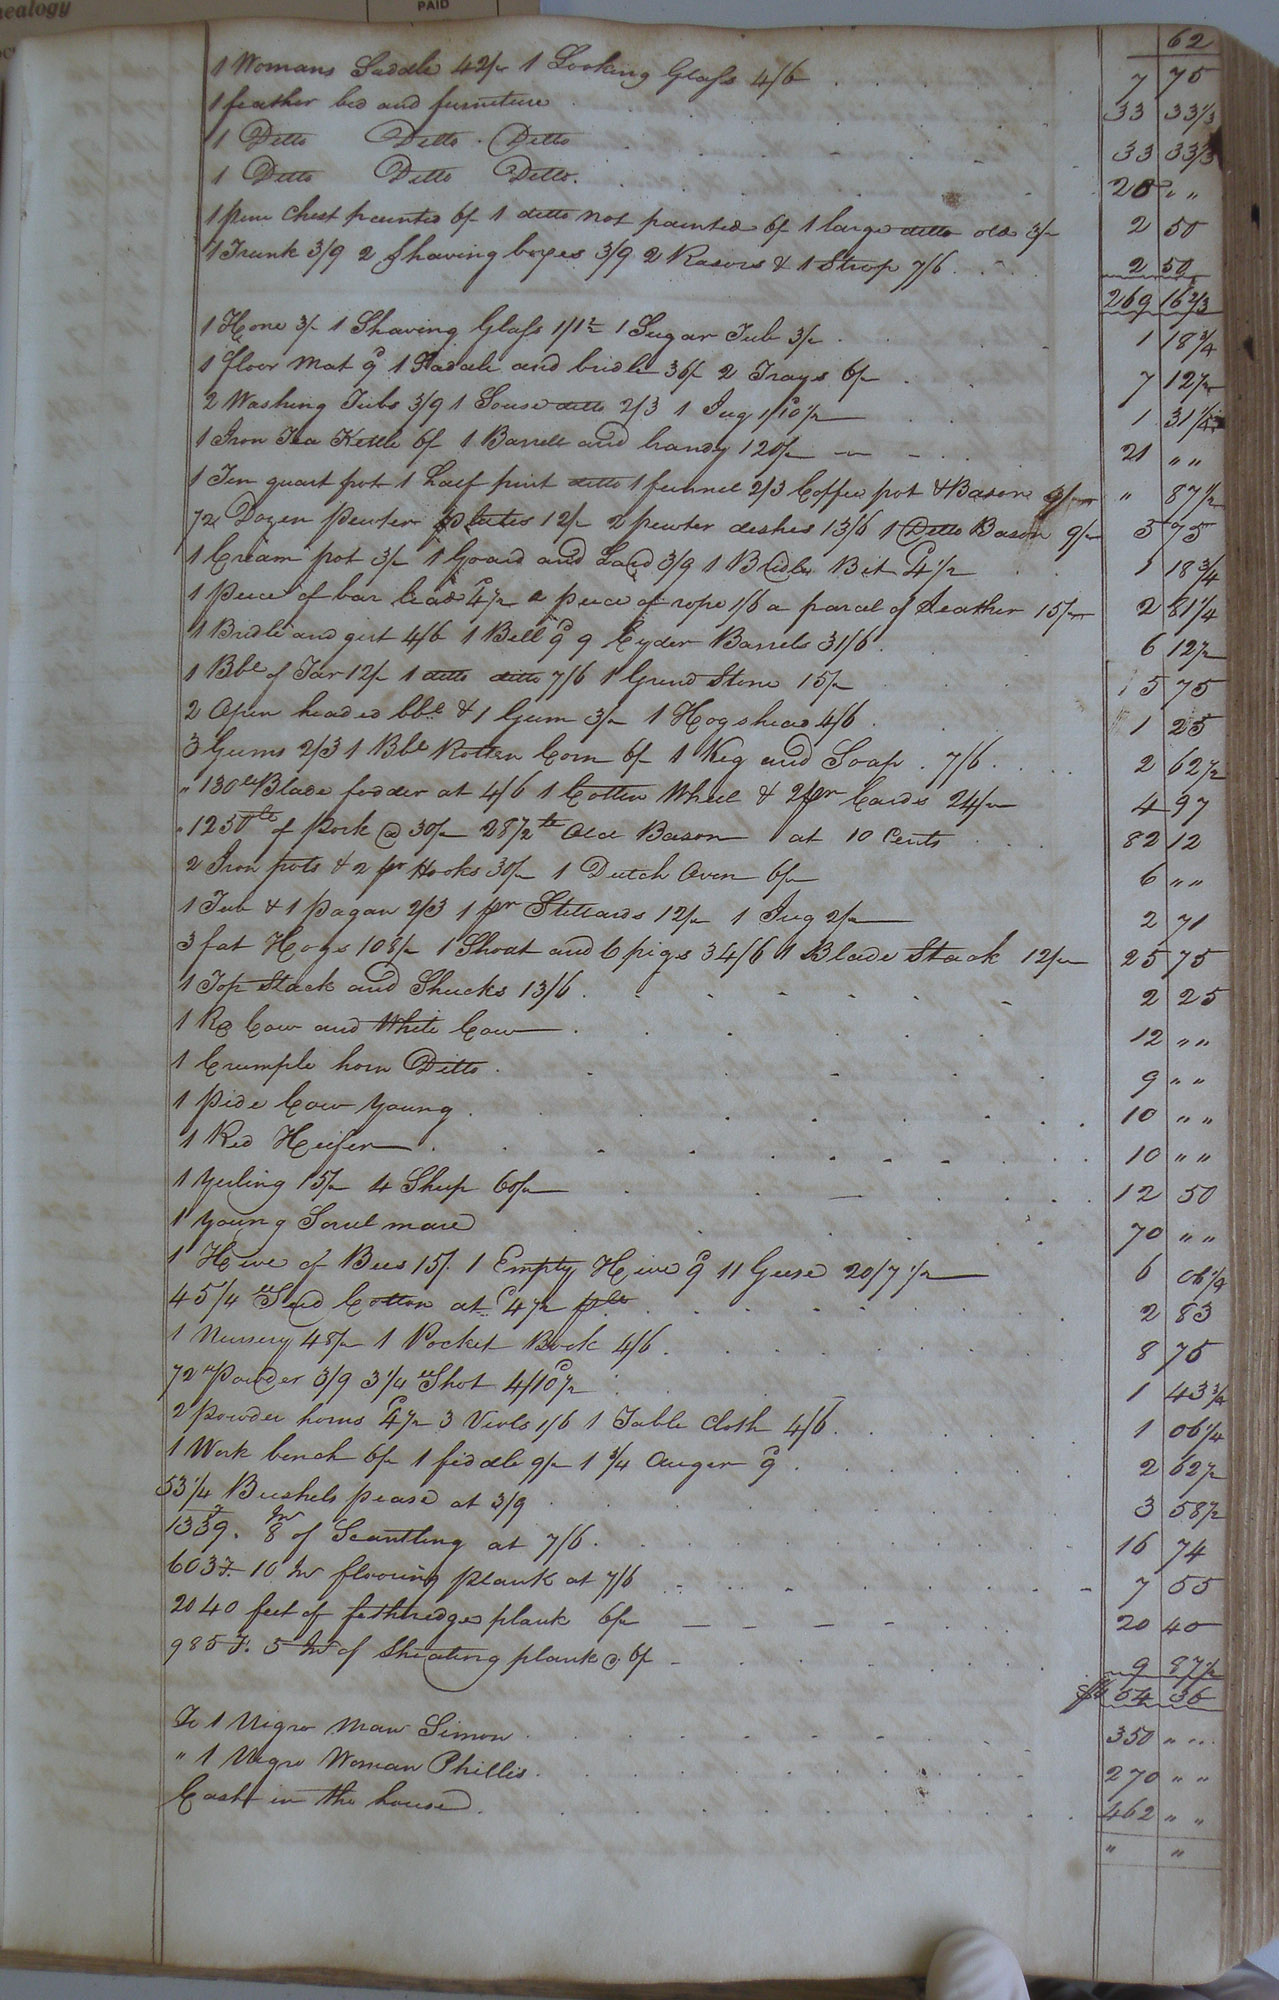 nealogy
PAID
62
1 Womans Saddle 42/- 1 Looking Glass 4/6 7 75
1 feather bed and furneture 33 33 1/3
1 Ditto Ditto Ditto 33 33 1/3
1 Ditto Ditto Ditto 20 " "
1 pine Chest painted 6/ 1 ditto not painted 6/ 1 large ditto old 3/- 2 50
1 Trunk 3/9 2 Shaving boxes 3/9 2 Rasors & 1 Strop 7/6 2 50
269 16 2/3
1 Hone 3/- 1 Shaving Glass 1/1½ 1 Sugar Tub 3/- 1 18 3/4
1 floor Mat 9d 1 Sadale and bridle 36/ 2 Trays 6/- 7 12½
2 Washing Tubs 3/9 1 Souse ditto 2/3 1 Jug 1/10½ 1 31 1/4
1 Iron Tea Kettle 6/ 1 Barrell and brandy 120/- 21 " "
1 Tin quart pot 1 half pint ditto 1 funnel 2/3 Coffee pot & Bason 3/- " 87½
½ Dozen Pewter plates 12/- 2 pewter deshes 13/6 1 Ditto Bason 9/- 5 75
1 Cream pot 3/- 1 Goard and Lard 3/9 1 Bridle Bit 4½d 1 18 3/4
1 Peice of bar lead 4½d a peece of rope 1/6 a parcel of Leather 15/- 2 81 1/4
1 Bridle and girt 4/6 1 Bell 9d 9 Cyder Barrels 31/6 6 12½
1 Bbl of Tar 12/- 1 ditto ditto 7/6 1 Grind Stone 15/- 5 75
2 Open headed bbl & 1 Gum 3/- 1 Hogshead 4/6 1 25
3 Gums 2/3 1 Bbl Rotten Corn 6/ 1 Keg and Soap 7/6 2 62½
" 130 lb Blade fodder at 4/6 1 Cotton Wheel & 2 pr Cards 24/- 4 97
" 1250 lb of Pork @ 30/- 28½ lb Old Bason at 10 Cents 82 12
2 Iron pots & 2 pr Hooks 30/- 1 Dutch Oven 6/- 6 " "
1 Tub & 1 Pagan 2/3 1 pr Stillards 12/- 1 Jug 2/- 2 71
3 fat Hogs 108/- 1 Shoat and 6 pigs 34/6 1 Blade Stack 12/- 25 75
1 Top Stack and Shucks 13/6 2 25
1 Re Cow and White Cow 12 " "
1 Crumple horn Ditto 9 " "
1 Pide Cow Young 10 " "
1 Red Heifer 10 " "
1 Yerling 15/- 4 Sheep 60/- 12 50
1 Young Sorrel mare 70 " "
1 Hive of Bees 15/ 1 Empty Hive 9d 11 Geese 20/7½ 6 06 1/4
45 1/4 lb Seed Cotton at 4½d 2 83
1 Nursery 48/- 1 Pocket Book 4/6 8 75
½ lb Powder 3/9 3 1/4 lb Shot 4/10½ 1 43 3/4
2 Powder horns 4½d 3 Viols 1/6 1 Table Cloth 4/6 1 06 1/4
1 Work bench 6/- 1 fiddle 9/- 1 3/4 Auger 9d 2 62½
53 1/4 Bushels pease at 3/9 3 58½
1339 f 8 In of Scantling at 7/6 16 74
603 F 10 In flooring Plank at 7/6 7 55
2040 feet of fethredge plank 6/- 20 40
985 F. 5 In of Sheating plank @ 6/ 9 87½
54 36
To 1 Nigro Man Simon 350 " "
" 1 Nigro Woman Phillis 270 " "
Cash in the house 462 " "
" "